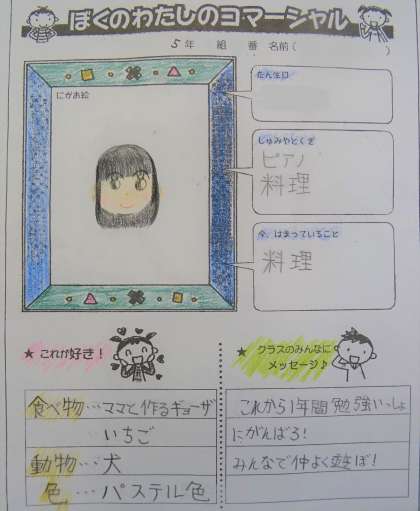 ぼくのわたしのコマーシャル
5年 組 番 名前( )
にがお絵
たん生日
しゅみやとくぎ
ピアノ
料理
今、はまっていること
料理
★ これが好き!
食べ物…ママと作るギョーザ
いちご
動物…犬
色…パステル色
★ クラスのみんなに
メッセージ♪
これから1年間勉強いっしょ
にがんばろ!
みんなで仲よく遊ぼ!